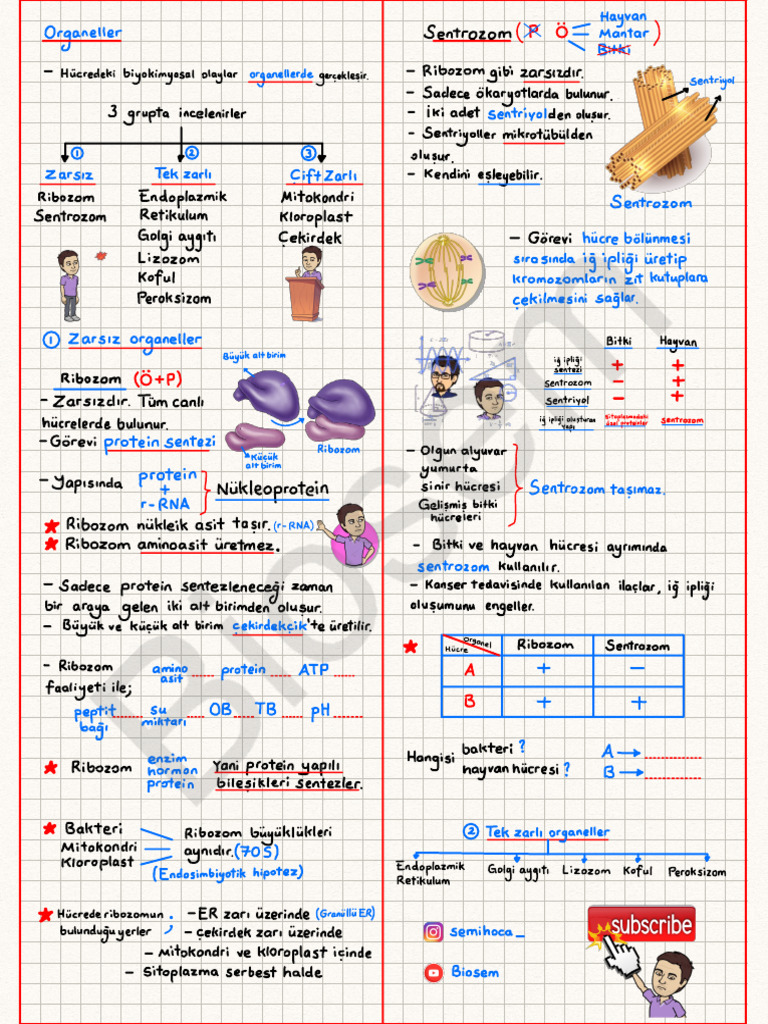 Organeller
- Hücredeki biyokimyasal olaylar organellerde gerçekleşir.
3 grupta incelenirler
1 2 3
Zarsız Tek zarlı Çift Zarlı
Ribozom
Sentrozom
Endoplazmik
Retikulum
Golgi aygıtı
Lizozom
Koful
Peroksizom
Mitokondri
Kloroplast
Çekirdek
1 Zarsız organeller
Ribozom (Ö+P)
- Zarsızdır. Tüm canlı
hücrelerde bulunur.
- Görevi protein sentezi
Büyük alt birim
Küçük
alt birim
Ribozom
- Yapısında protein
+
r-RNA
Nükleoprotein
★ Ribozom nükleik asit taşır. (r-RNA)
★ Ribozom aminoasit üretmez.
- Sadece protein sentezleneceği zaman
bir araya gelen iki alt birimden oluşur.
- Büyük ve küçük alt birim çekirdekçik'te üretilir.
- Ribozom
faaliyeti ile;
amino
asit ...... protein ...... ATP ......
peptit
bağı ...... su
miktarı ...... OB ...... TB ...... pH ......
★ Ribozom enzim
hormon
protein
Yani protein yapılı
bileşikleri sentezler.
★ Bakteri
Mitokondri
Kloroplast
Ribozom büyüklükleri
aynıdır. (70S)
(Endosimbiyotik hipotez)
★ Hücrede ribozomun
bulunduğu yerler
- ER zarı üzerinde (Granüllü ER)
- çekirdek zarı üzerinde
- Mitokondri ve kloroplast içinde
- Sitoplazma serbest halde
Sentrozom (P Ö Hayvan
Mantar
Bitki)
- Ribozom gibi zarsızdır.
- Sadece ökaryotlarda bulunur.
- İki adet sentriyolden oluşur.
- Sentriyoller mikrotübülden
oluşur.
- Kendini eşleyebilir.
Sentriyol
Sentrozom
- Görevi hücre bölünmesi
sırasında iğ ipliği üretip
kromozomların zıt kutuplara
çekilmesini sağlar.
Bitki Hayvan
iğ ipliği
sentezi + +
sentrozom - +
sentriyol - +
iğ ipliği oluşturan
yapı
Sitoplazmadaki
özel proteinler
sentrozom
- Olgun alyuvar
yumurta
sinir hücresi
Gelişmiş bitki
hücreleri
Sentrozom taşımaz.
- Bitki ve hayvan hücresi ayrımında
sentrozom kullanılır.
- Kanser tedavisinde kullanılan ilaçlar, iğ ipliği
oluşumunu engeller.
★ Organel
Hücre
Ribozom Sentrozom
A + -
B + +
Hangisi bakteri?
hayvan hücresi?
A → ......
B → ......
2 Tek zarlı organeller
Endoplazmik
Retikulum
Golgi aygıtı Lizozom Koful Peroksizom
semihoca_
Biosem
subscribe
Biosem